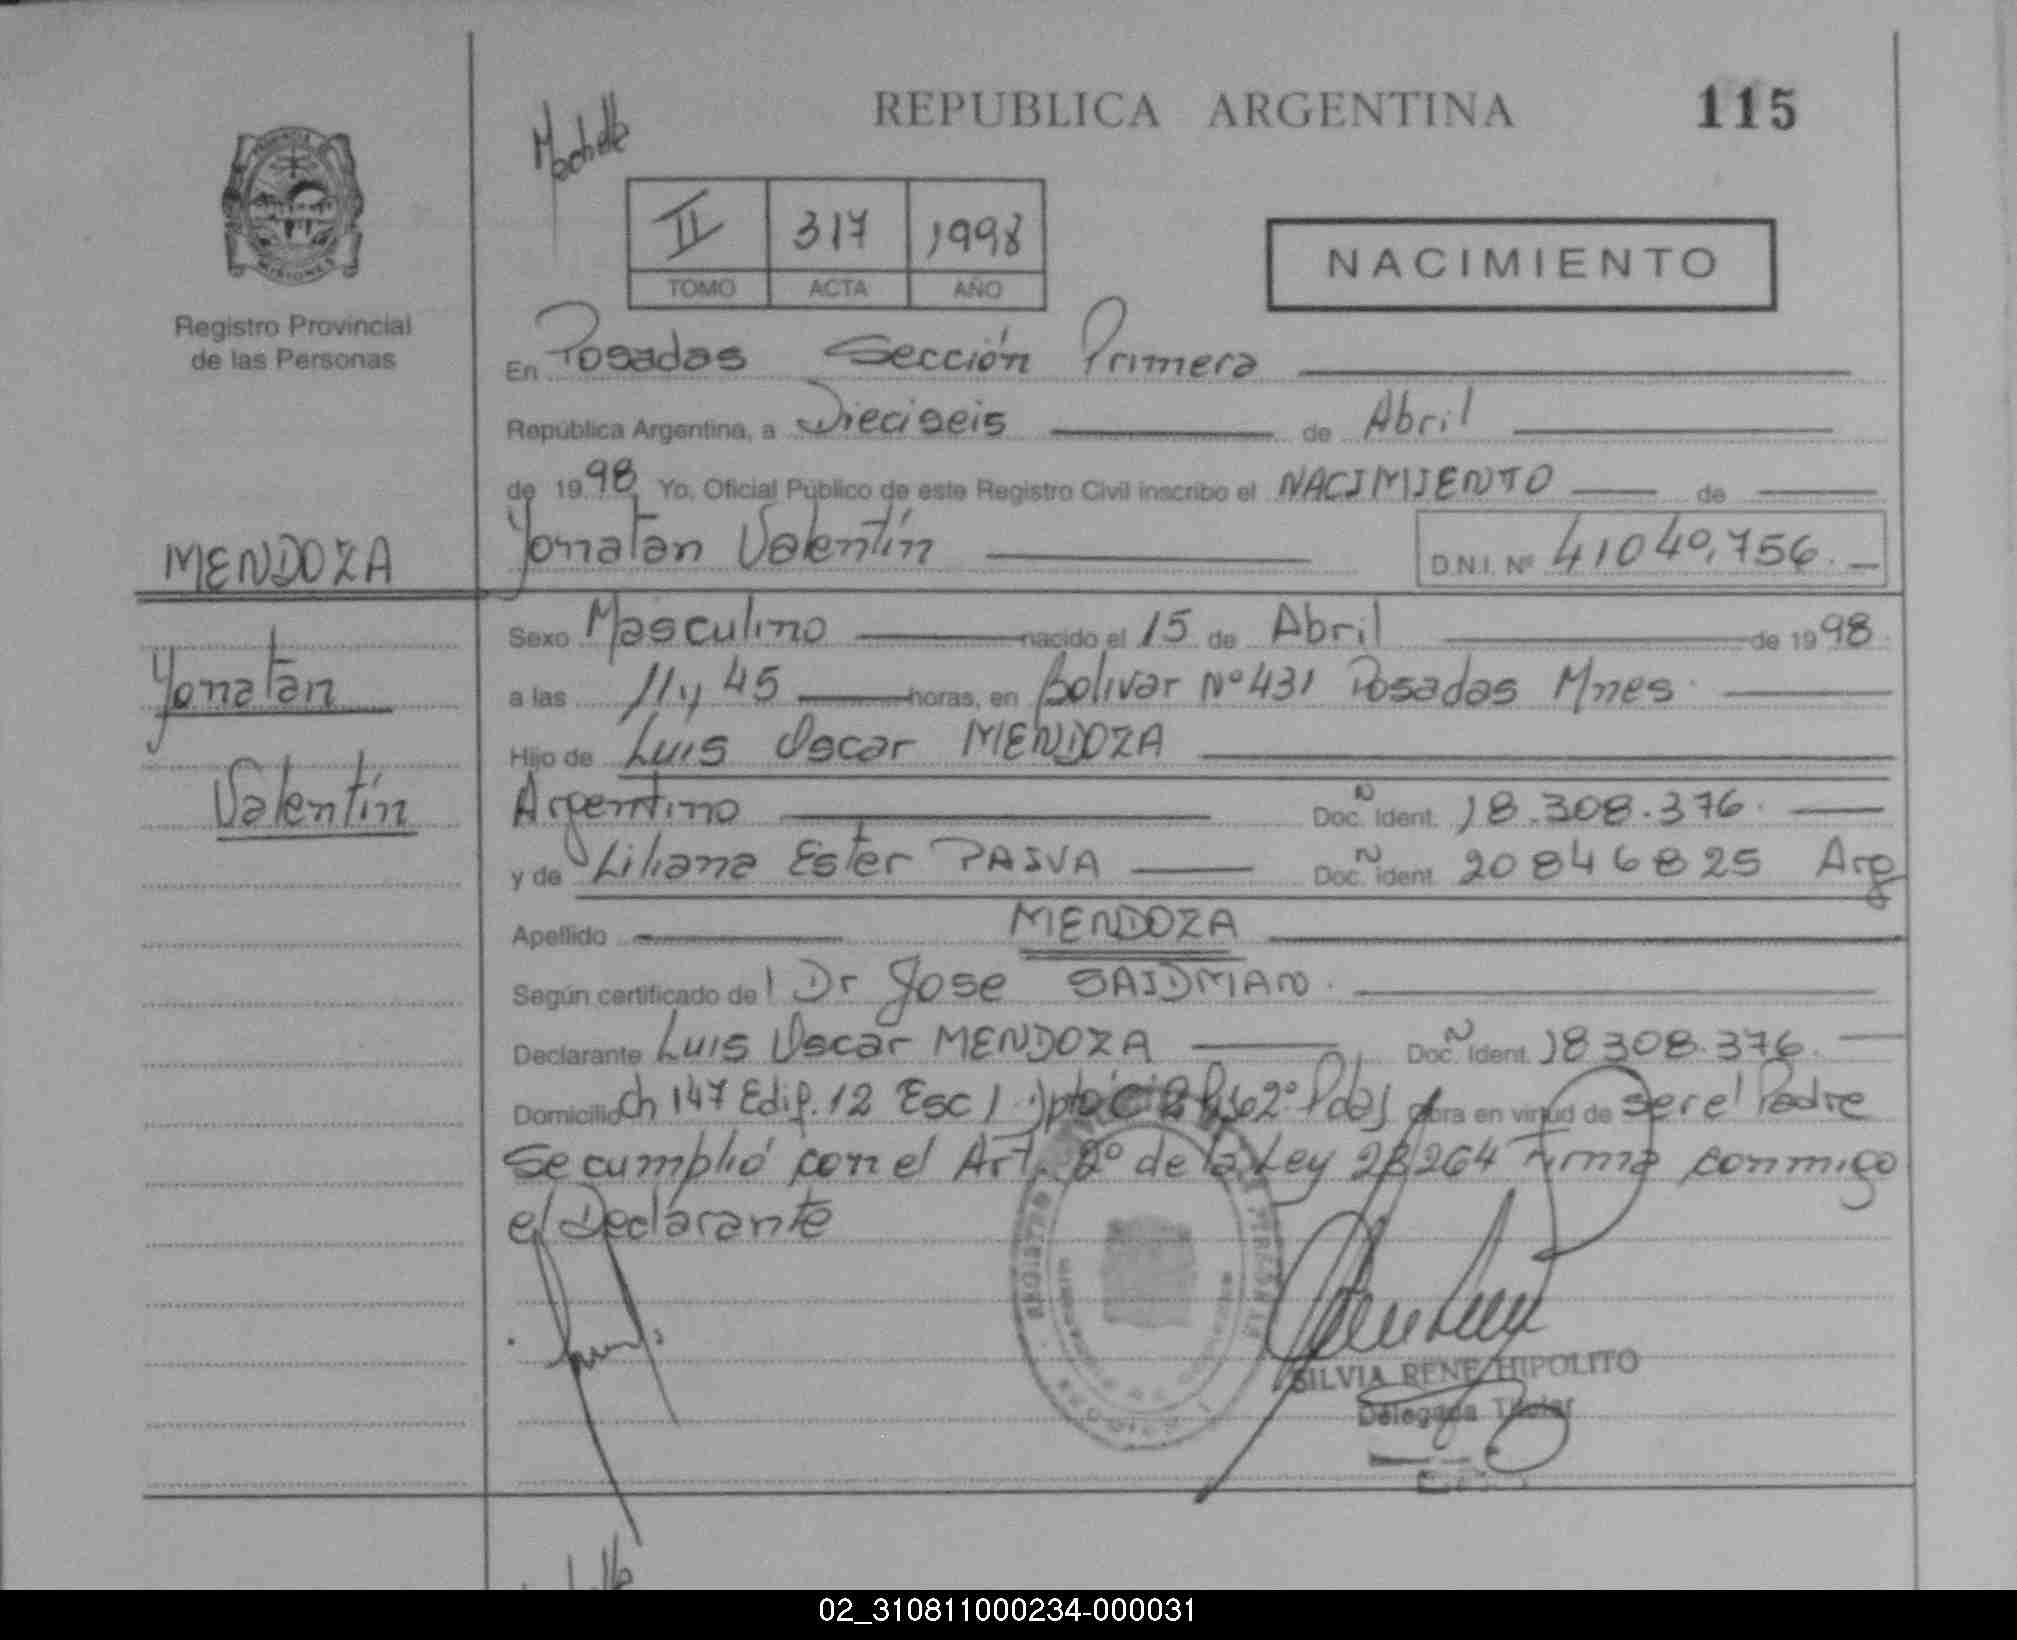 REPUBLICA ARGENTINA
115
PROVINCIA
MISIONES
Registro Provincial
de las Personas
II 317 1998
TOMO ACTA AÑO
NACIMIENTO
En Posadas Sección Primera
República Argentina, a Dieciseis de Abril
de 1998 Yo, Oficial Público de este Registro Civil inscribo el NACIMIENTO de
Yonatan Valentín D.N.I. Nº 41040,756.
MENDOZA
Yonatan
Valentín
Sexo Masculino nacido el 15 de Abril de 1998
a las 11 y 45 horas, en Bolivar Nº 431 Posadas Mnes.
Hijo de Luis Oscar MENDOZA
Argentino Doc. N Ident. 18.308.376.
y de Liliana Ester PAIVA Doc. N Ident. 20846825 Arg
Apellido MENDOZA
Según certificado del Dr Jose SAIDMAN.
Declarante Luis Oscar MENDOZA Doc. N Ident. 18308.376.
Domicilio Ch 147 Edif. 12 Esc 1 2º Pdas obra en virtud de ser el Padre
Se cumplió con el Art. 2º de la Ley 23264 Firma conmigo
el Declarante
SILVIA RENE HIPOLITO
Delegada Titular
02_310811000234-000031